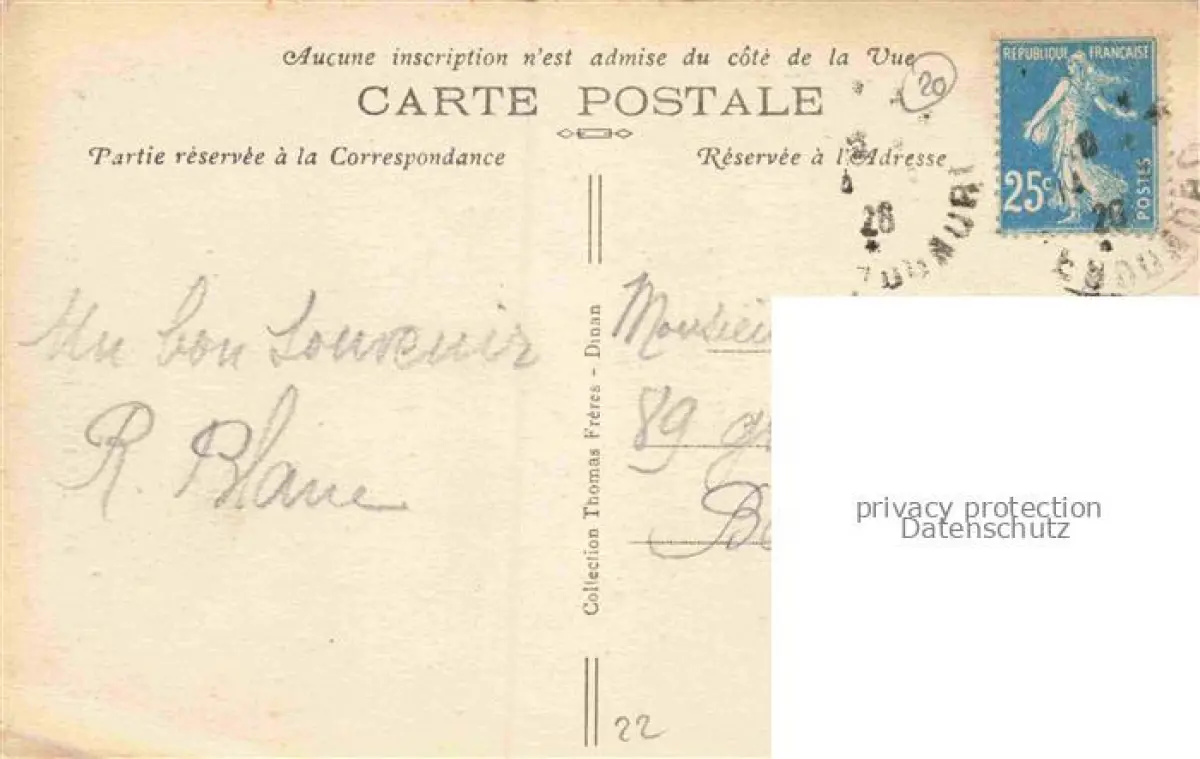 Aucune inscription n'est admise du côté de la Vue
20
CARTE POSTALE
Partie réservée à la Correspondance
Réservée à l'Adresse
RÉPUBLIQUE FRANÇAISE
25c
POSTES
26
26
Un bon Souvenir
R. Blanc
Collection Thomas Frères - Dinan
Monsieu
89
privacy protection
Datenschutz
22